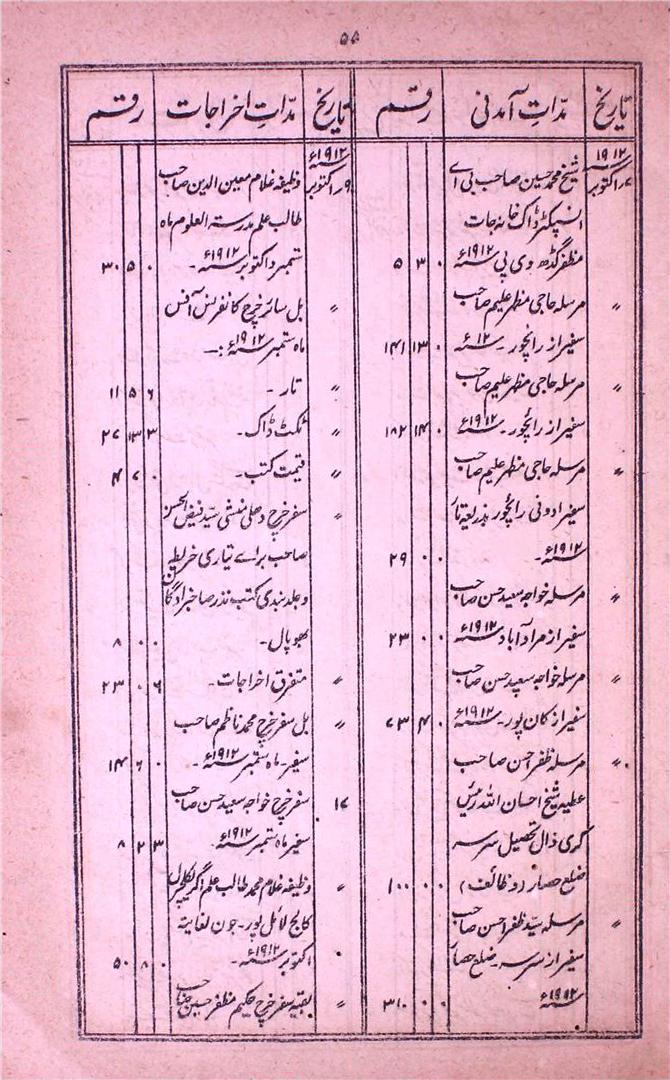 ۵۵
تاریخ مدّاتِ آمدنی رقم
۱۹۱۲ء
۷ اکتوبر شیخ محمد حسین صاحب بی اے
انسپکٹر ڈاک خانہ جات
مظفر گڈھ وی پی ۱۹۱۲ء ۵ ۳ ۰
〃 مرسلہ حاجی مظہر علیم صاحب
سفیر از رائچور۔ ۱۲ء ۱۴۱ ۱۳ ۰
〃 مرسلہ حاجی مظہر علیم صاحب
سفیر از رائچور۔ ۱۹۱۲ء ۱۸۲ ۱۴ ۰
〃 مرسلہ حاجی مظہر علیم صاحب
سفیر ادونی رائچور بذریعہ تار
۱۹۱۲ء۔ ۲۹ ۰ ۰
〃 مرسلہ خواجہ سعید حسن صاحب
سفیر از مراد آباد ۱۹۱۲ء ۲۳ ۰ ۰
〃 مرسلہ خواجہ سعید حسن صاحب
سفیر از کان پور۔ ۱۹۱۲ء ۷۳ ۴ ۰
〃 مرسلہ ظفر احسن صاحب
عطیہ شیخ احسان اللہ رئیس
ضلع حصار (وظائف) ۱۰۰ ۰ ۰
〃 مرسلہ سیّد ظفر احسن صاحب
سفیر از سرسہ۔ ضلع حصار
۱۹۱۲ء ۳۱۰ ۰ ۰
تاریخ مدّاتِ اخراجات رقم
۱۹۱۲ء
۹ اکتوبر وظیفہ غلام معین الدین صاحب
طالب علم مدرسۃ العلوم ماہ
ستمبر و اکتوبر ۱۹۱۲ء۔ ۳۰ ۵ ۰
〃 بل سائر خرچ کانفرنس آفس
ماہ ستمبر ۱۹۱۲ء :۔
〃 تار۔ ۱۱ ۵ ۶
〃 ٹکٹ ڈاک۔ ۲۷ ۱۳ ۳
〃 قیمت کتب۔ ۴ ۷ ۰
〃 سفر خرچ دھلی منشی سیّد فیض الحسن
صاحب براے تیاری خریطہ
و جلد بندی کتب نذر صاحبزادگان
بھوپال۔ ۸ ۰ ۰
〃 متفرق اخراجات۔ ۲۳ ۰ ۶
〃 بل سفر خرچ محمد ناظم صاحب
سفیر۔ ماہ ستمبر ۱۹۱۲ء۔ ۱۴ ۶ ۰
۱۷ سفر خرچ خواجہ سعید حسن صاحب
سفیر ماہ ستمبر ۱۹۱۲ء۔ ۸ ۲ ۳
〃 وظیفہ غلام محمد طالب علم اگریکلچرل
کالج لائل پور۔ جون لغایۃ
اکتوبر ۱۹۱۲ء۔ ۵۰ ۸ ۰
〃 بقیہ سفر خرچ حکیم مظفر حسین صاحب